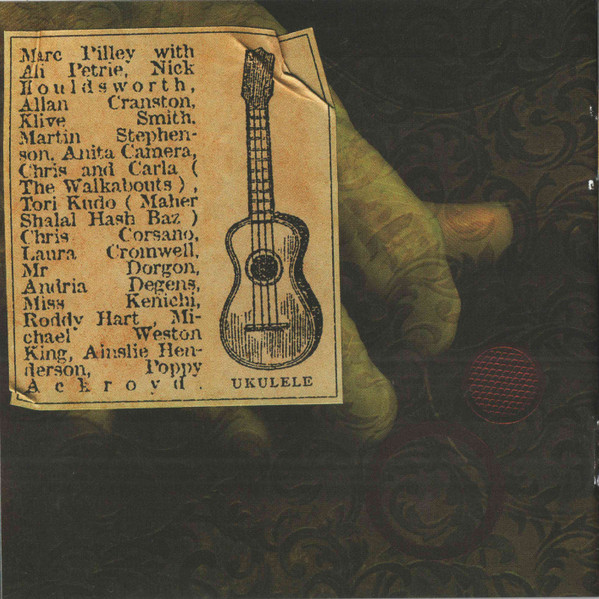 Marc Pilley with
Ali Petrie, Nick
Houldsworth,
Allan Cranston,
Klive Smith,
Martin Stephen-
son, Anita Camera,
Chris and Carla (
The Walkabouts ) ,
Tori Kudo ( Maher
Shalal Hash Baz )
Chris Corsano,
Laura Cromwell,
Mr Dorgon,
Andria Degens,
Miss Kenichi,
Roddy Hart , Mi-
chael Weston
King, Ainslie Hen-
derson, Poppy
Ackroyd.
UKULELE